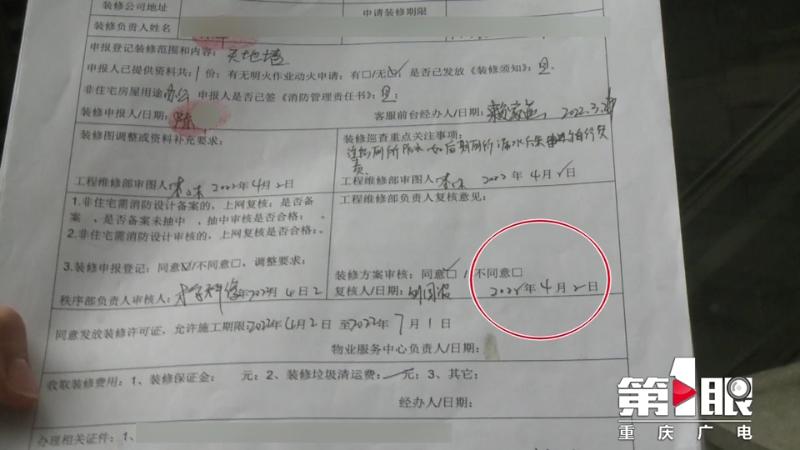 装修公司地址 申请装修期限
装修负责人姓名
申报登记装修范围和内容: 天地墙
申报人已提供资料共:1份: 有无明火作业动火申请: 有□/无☑ 是否已发放《装修须知》: 是.
非住宅房屋用途: 办公 申报人是否已签《消防管理责任书》: 是.
装修申报人/日期: 客服前台经办人/日期: 2022.3.
装修图调整或资料补充要求: 装修巡查重点关注事项:
工程维修部审图人 2022年4月2日 工程维修部审图人 2022年4月2日
1.非住宅需消防设计备案的, 上网复核: 是否备 工程维修部负责人复核意见:
案 、是否备案未抽中 、抽中审核是否合格: 。
2.非住宅需消防设计审核的, 上网复核是否合格: 。
3.装修申报登记: 同意☑/不同意□, 调整要求: 装修方案审核: 同意☑ / 不同意□
秩序部负责人审核人: 年 4月2 复核人/日期: 年4月2日
同意发放装修许可证, 允许施工期限: 2022年4月2日 至2022年7月1日
物业服务中心负责人/日期:
收取装修费用: 1、装修保证金: 元; 2、装修垃圾清运费: 元; 3、其它:
经办人/日期:
办理相关证件: 1、
第1眼
重庆广电